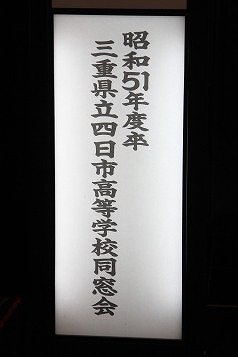 昭和51年度卒
三重県立四日市高等学校同窓会